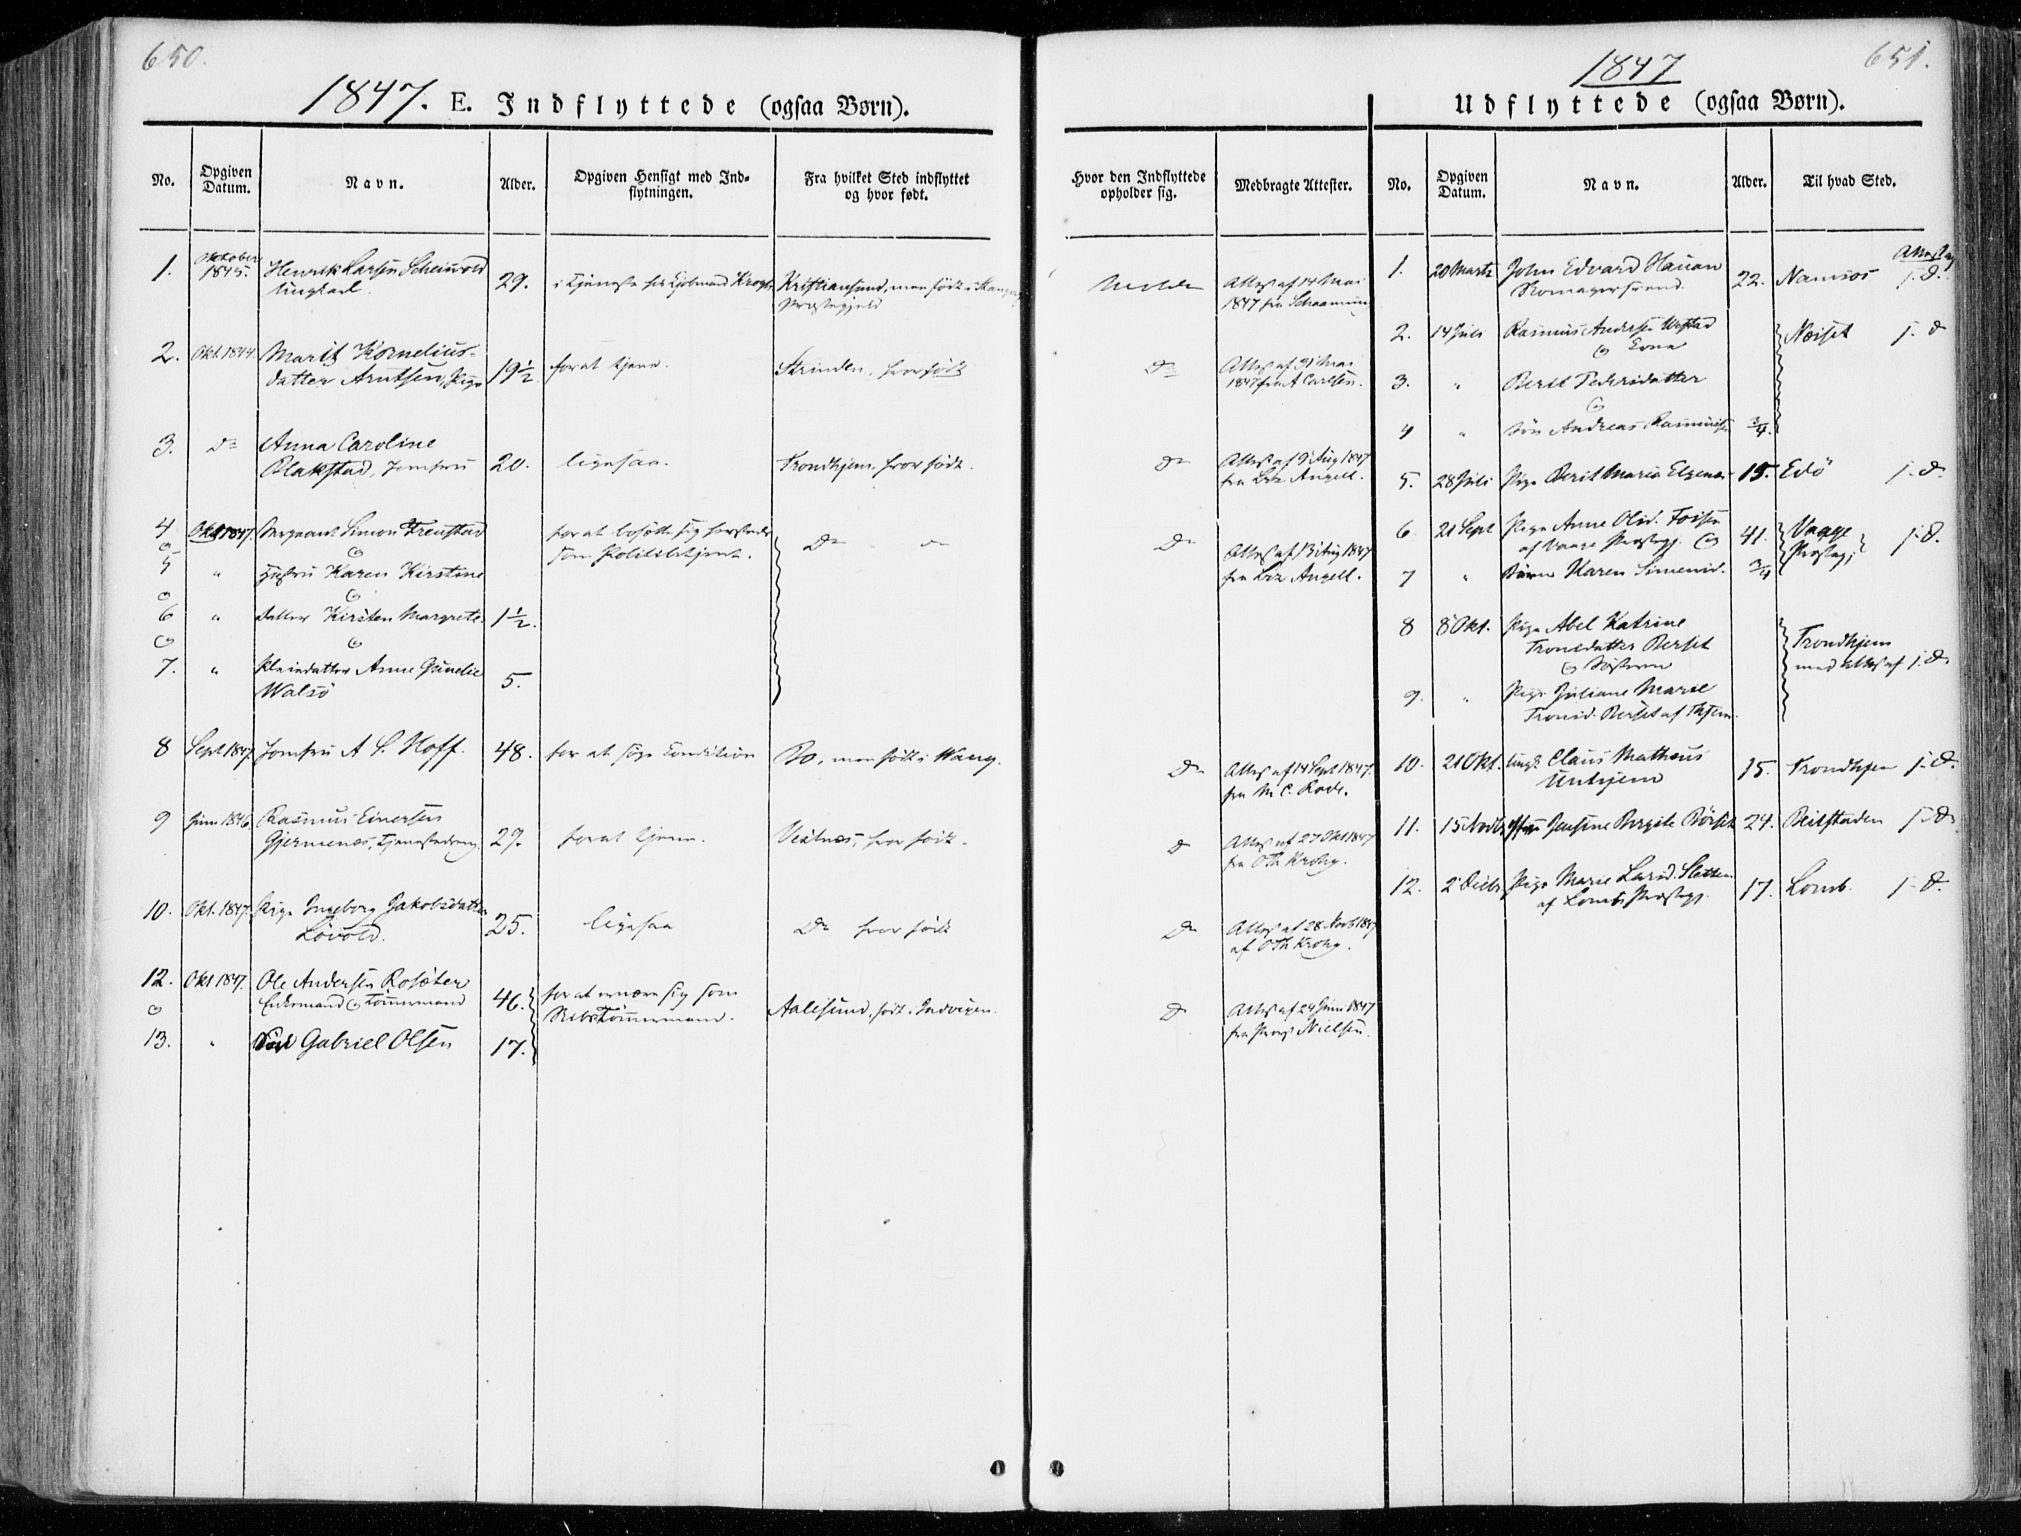 650.
1847. E. Indflyttede (ogsaa Børn).
No. Opgiven Datum. Navn. Alder. Opgiven Hensigt med Indflytningen. Fra hvilket Sted indflyttet og hvor født.
1. Oktober 1845. Henrik Larsen 29. i Tjeneste hos Kjøbmand Kristiansund, men født i
Ungkarl. Præstegjeld
2. Okt. 1844. Marit Kornelius- 19½ for at tjene. Strinden, hvor født
datter Arntsen, Pige
3. Do Anna Caroline
Blakstad, Jomfru 20. ligesaa. Trondhjem, hvor født.
4 Okt 1847. Sergeant Simon for at bosætte sig
og som Politibetjent. Do
5 " Hustru Karen Kirstine
og
6 " Datter Kirsten Margrete 1½.
og
7. " Pleiedatter Anne
Walsö 5.
8 Sept 1847. Jomfru A S. Hoff. 48. for at søge Condition Bo, men født i Wang.
9 Juni 1846 Rasmus Einersen
Gjermenæs, Tjenestedreng 29. for at tjene. Vestnæs, hvor født.
10. Okt. 1847. Pige Ingeborg Jakobsdatter
Lövold. 25. ligesaa Do hvor født
12. Okt 1847. Ole Andersen Rosæter
og Enkemand og Tömmermand 46. for at ernære sig som
Skibstömmermand. Aalesund, født i Indvigen.
13. " Sön Gabriel Olsen 17.
651.
1847
Udflyttede (ogsaa Børn).
Hvor den Indflyttede opholder sig. Medbragte Attester. No. Opgiven Datum. Navn. Alder. Til hvad Sted.
Molde Attest af 14 Mai
1847 fra
Do Attest af 31 Mai
1847 fra A Carlsen.
Do Attest af 9 Aug 1847
fra Angell.
Do Attest af 13 Aug 1847
fra Angell.
Do Attest af 14 Sept 1847.
fra M C. Rode.
Do Attest af 27 Okt 1847
fra O Th Krohg.
Do Attest af 28 Novb 1847
af O Th Krohg.
Do Attest af 24 Juni 1847
fra Nielsen.
Attest
1. 20 Marts John Edvard Hauan 22. Namsos s. D.
Skomagersvend.
2. 14 Juli Rasmus Andersen Næsset s. D
og Kone
3. " Berit Pedersdatter
og
4 " Sön Andreas Rasmussen ¾.
5. 28 Juli Pige Berit Maria 15. Edö s. D.
6. 21 Sept Pige Anne Olsd. 41. Vaage s. D.
af Vaage Præstegj. og Præstegj.
7 " Karen Simensd. ¾
8 8 Okt. Pige Abel Katrine
Tronsdatter Berset Trondhjem
og Søsteren med Attest af s. D.
9. " Pige Juliane Marie
Tronsd. Berset af Thjem.
10. 21 Okt. Ungk. Claus Mathæus
Unhjem 15. Trondhjem s. D.
11. 15 Novbr Jensine Birgite 24. Beitstaden s. D.
12. 2 Decbr Pige Marie Larsd. Sletten 17. Lomb. s. D.
af Lombs Præstegj.